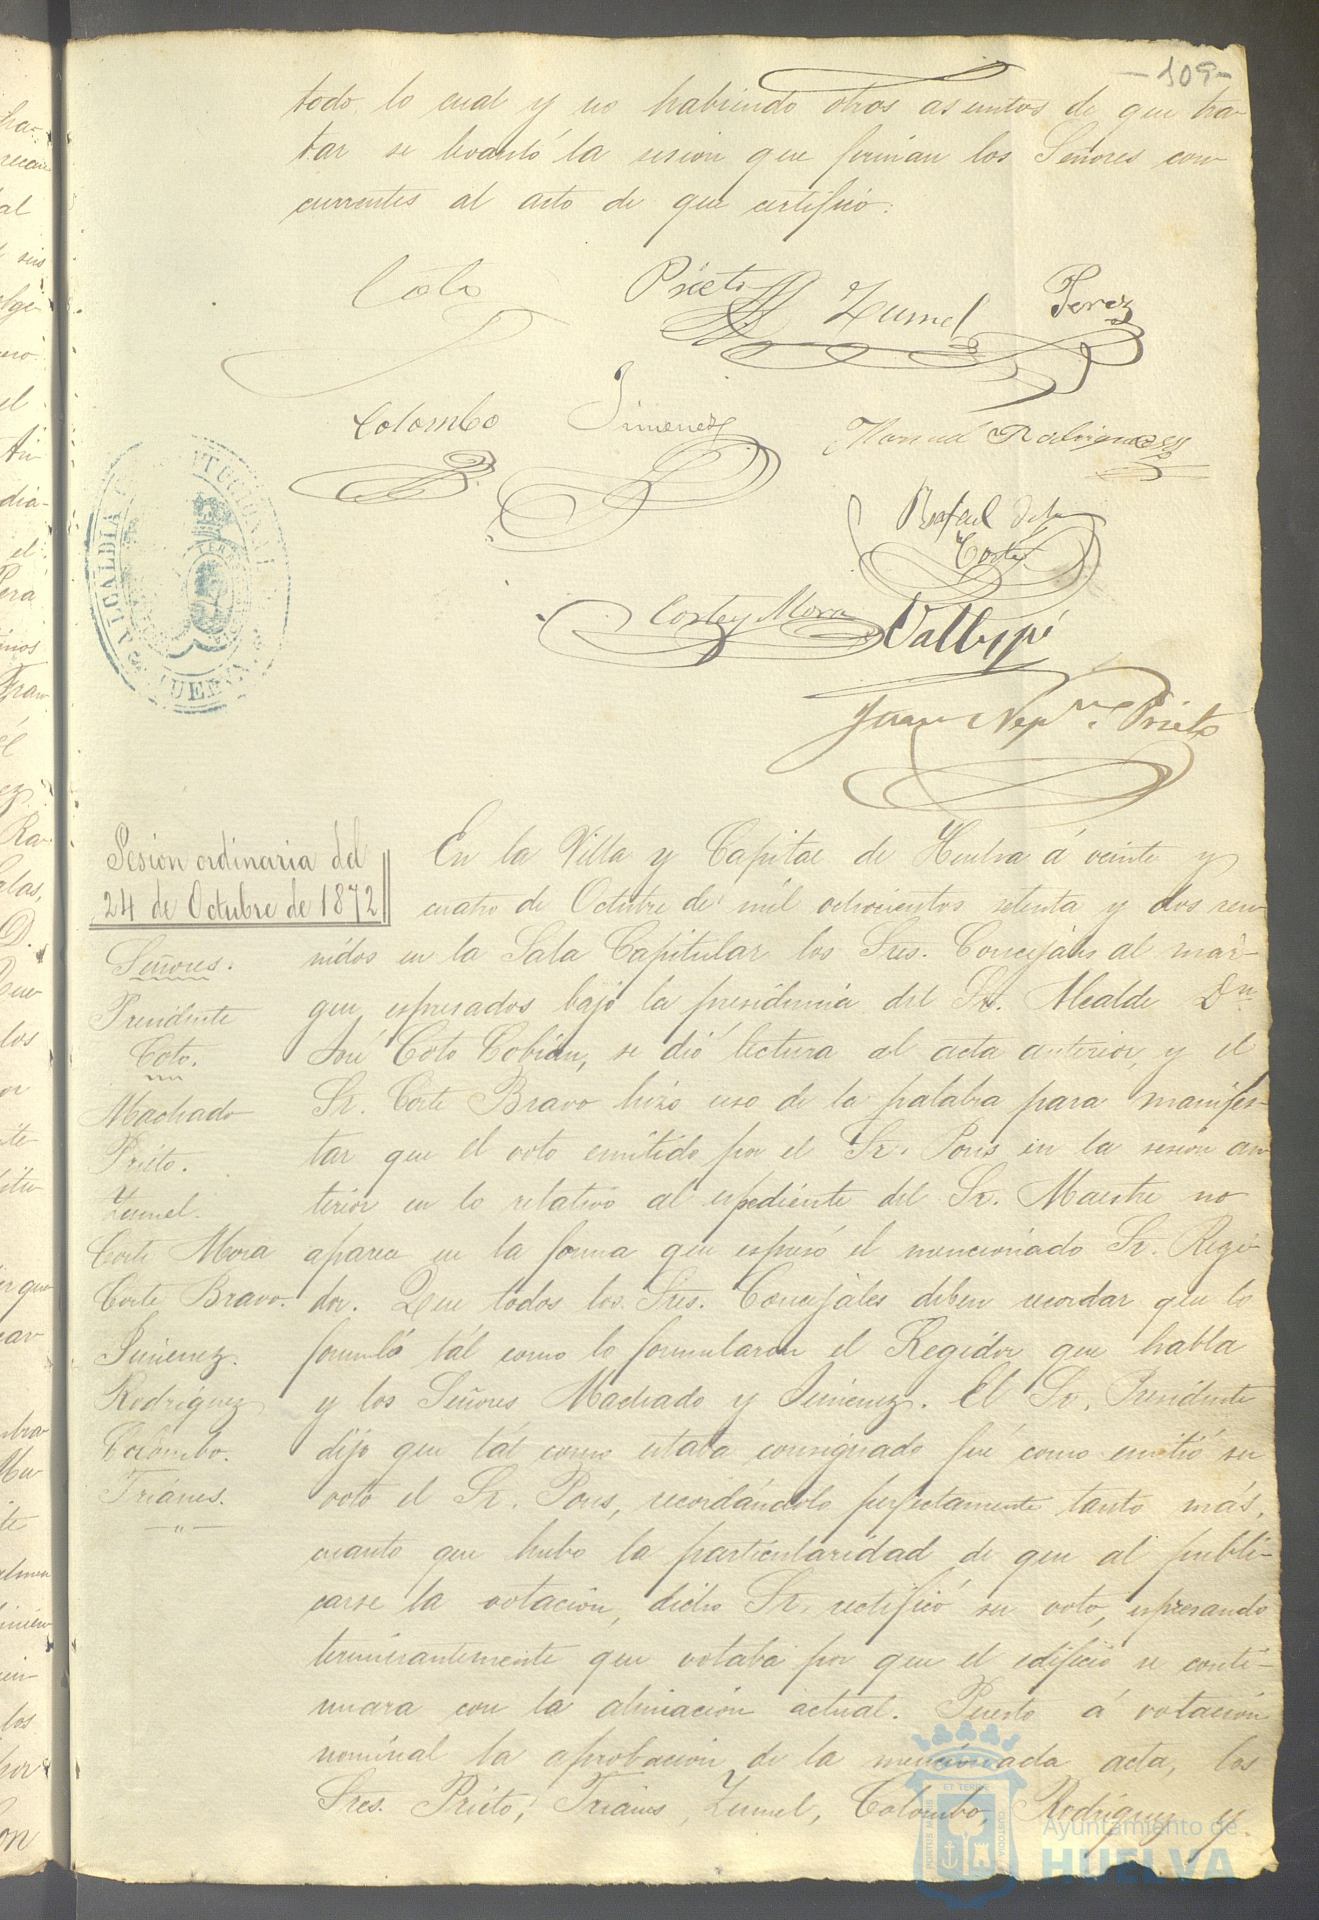 -109-
todo lo cual y no habiendo otros asuntos de que tra-
tar se levantó la sesion que firman los Señores con
currentes al acto de que certifico:
Coto
Prieto
Zumel
Perez
Colombo
Jimenez
Manuel Rodriguez
Rafael de la
Corte
Corte y Mora
Juan Nepno. Prieto
ALCALDIA CONSTITUCIONAL
HUELVA
Sesion ordinaria del
24 de Octubre de 1872
Señores.
Presidente
Coto.
Machado
Prieto.
Zumel.
Corte Mora
Corte Bravo.
Jimenez.
Rodriguez
Colombo.
Trianes.
En la Villa y Capital de Huelva á veinte y
cuatro de Octubre de mil ochocientos setenta y dos reu
nidos en la Sala Capitular los Sres. Concejales al már-
gen espresados bajo la presidencia del Sr. Alcalde Dn
José Coto Cobian, se dió lectura al acta anterior, y el
Sr. Corte Bravo hizo uso de la palabra para manifes-
tar que el voto emitido por el Sr. Pons en la sesion an
terior en lo relativo al espediente del Sr. Maestre no
aparece en la forma que espresó el mencionado Sr. Regi-
dor. Que todos los Sres. Concejales deben recordar que lo
formuló tál como lo formularon el Regidor que habla
y los Señores Machado y Jimenez. El Sr. Presidente
dijo que tál como estaba consignado fué como emitió su
voto el Sr. Pons, recordándolo perfectamente tanto más,
cuanto que hubo la particularidad de que al publi-
carse la votacion, dicho Sr. rectificó su voto, espresando
terminantemente que votaba por que el edificio se conti-
nuara con la alineacion actual. Puesto á votacion
nominal la aprobacion de la mencionada acta, los
Sres. Prieto, Trianes, Zumel, Colombo, Rodriguez y
PORTUS MARIS ET TERRE CUSTODIA
Ayuntamiento de
HUELVA